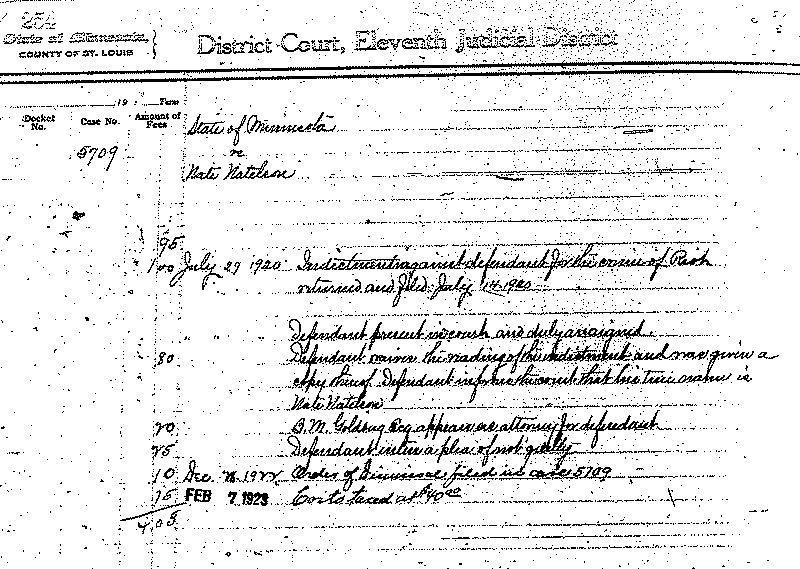 254
State of Minnesota,
COUNTY OF ST. LOUIS
District Court, Eleventh Judicial District
19 Term
Docket No. Case No. Amount of Fees
State of Minnesota
5709 vs
Nate Natelson
95
1 00 July 27 1920 Indictment against defendant for the crime of Riot
returned and filed July 14 1920
" " " Defendant present in court and duly arraigned.
80 Defendant waives the reading of the indictment and was given a
copy thereof. Defendant informs the court that his true name is
Nate Natelson
20 B. M. Goldberg Esq appears as attorney for defendant
25 Defendant enters a plea of not guilty
10 Dec. 1922 Order of Dismissal filed in case 5709
75 FEB 7 1923 Costs taxed at $4000
4 05